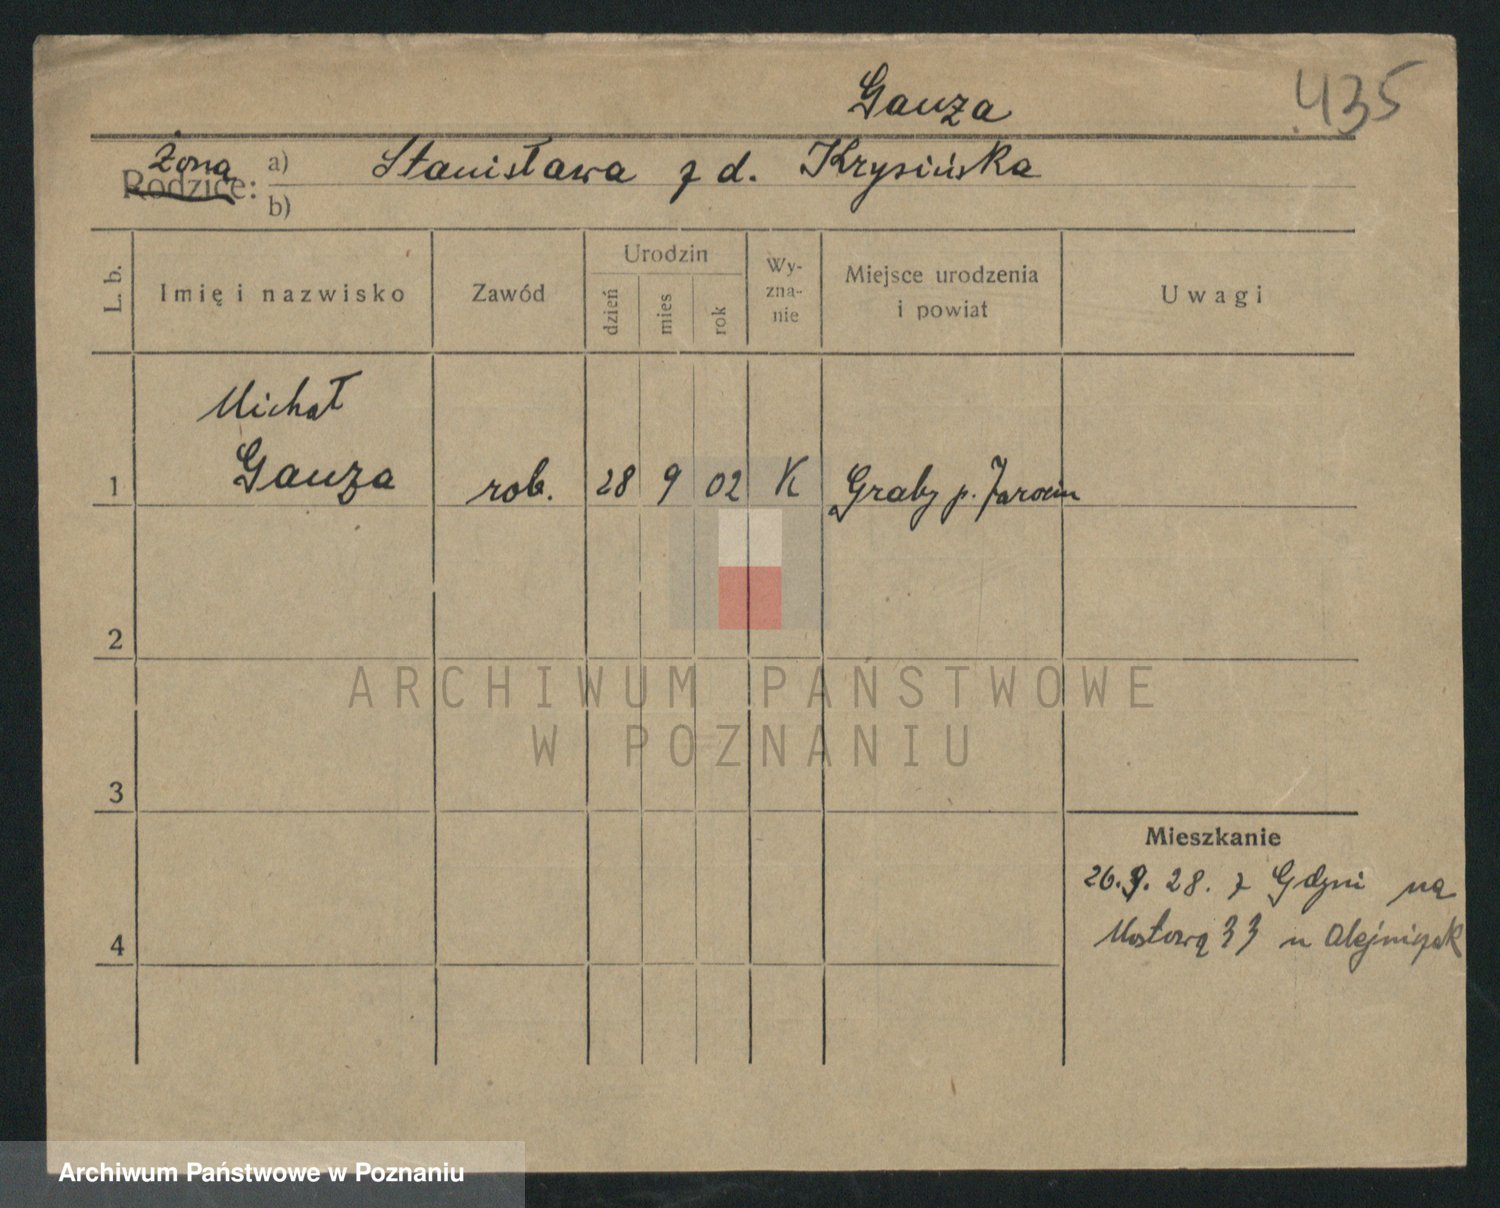 Gauza
435
żona
Rodzice:
a) Stanisława z d. Krysińska
b)
L. b.
Imię i nazwisko
Zawód
Urodzin
dzień
mies
rok
Wy-
zna-
nie
Miejsce urodzenia
i powiat
Uwagi
Michał
1 Gauza rob. 28 9 02 K Graby p. Jarocin
2
ARCHIWUM PAŃSTWOWE
W POZNANIU
3
Mieszkanie
26.9.28. z Gdyni na
Mostową 33 u Olejniczak
4
Archiwum Państwowe w Poznaniu